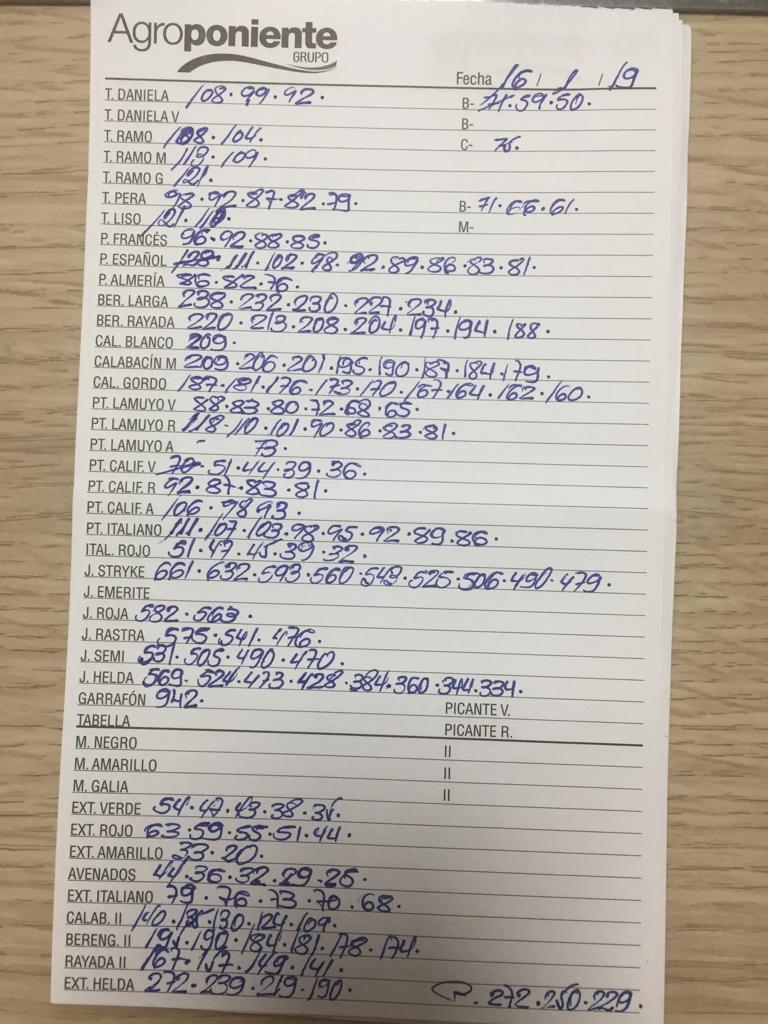 Agroponiente
GRUPO
Fecha 16 / 1 / 19
T. DANIELA 108·99·92· B- 71·59·50·
T. DANIELA V B-
T. RAMO 108·104· C- 75·
T. RAMO M 113·109·
T. RAMO G 121·
T. PERA 98·92·87·82·79· B- 71·66·61·
T. LISO 121· M-
P. FRANCÉS 96·92·88·85·
P. ESPAÑOL 128·111·102·98·92·89·86·83·81·
P. ALMERÍA 86·82·76·
BER. LARGA 238·232·230·227·234·
BER. RAYADA 220·213·208·204·197·194·188·
CAL. BLANCO 209·
CALABACÍN M 209·206·201·195·190·187·184·179·
CAL. GORDO 187·181·176·173·170·167·164·162·160·
PT. LAMUYO V 88·83·80·72·68·65·
PT. LAMUYO R 118·110·101·90·86·83·81·
PT. LAMUYO A - 73·
PT. CALIF. V 70·51·44·39·36·
PT. CALIF. R 92·87·83·81·
PT. CALIF. A 106·98 93·
PT. ITALIANO 111·107·103·98·95·92·89·86·
ITAL. ROJO 51·47·45·39·32·
J. STRYKE 661·632·593·560·543·525·506·490·479·
J. EMERITE
J. ROJA 582·563·
J. RASTRA 575·541·476·
J. SEMI 531·505·490·470·
J. HELDA 569·524·473·428·384·360·344·334·
GARRAFÓN 942· PICANTE V.
TABELLA PICANTE R.
M. NEGRO II
M. AMARILLO II
M. GALIA II
EXT. VERDE 54·47·43·38·35·
EXT. ROJO 63·59·55·51·44·
EXT. AMARILLO 33·20·
AVENADOS 44·36·32·29·25·
EXT. ITALIANO 79·76·73·70·68·
CALAB. II 140·135·130·124·109·
BERENG. II 195·190·184·181·178·174·
RAYADA II 167·157·149·141·
EXT. HELDA 272·239·219·190· P. 272·250·229·